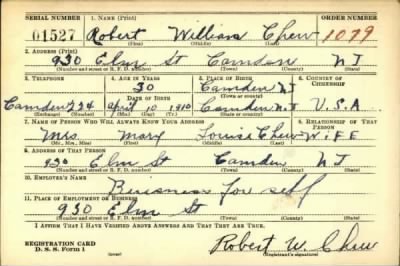 SERIAL NUMBER 1. NAME (Print) ORDER NUMBER
01527 Robert William Chew 1079
(First) (Middle) (Last)
2. ADDRESS (Print)
930 Elm St Camden NJ
(Number and street or R. F. D. number) (Town) (County) (State)
3. TELEPHONE 4. AGE IN YEARS 5. PLACE OF BIRTH 6. COUNTRY OF CITIZENSHIP
30 Camden NJ
DATE OF BIRTH (Town or county)
Camden 224 April 10 1910 Camden N.J U.S.A
(Exchange) (Number) (Mo.) (Day) (Yr.) (State or country)
7. NAME OF PERSON WHO WILL ALWAYS KNOW YOUR ADDRESS 8. RELATIONSHIP OF THAT PERSON
Mrs. Mary Louise Chew WIFE
(Mr., Mrs., Miss) (First) (Middle) (Last)
9. ADDRESS OF THAT PERSON
930 Elm St Camden NJ
(Number and street or R. F. D. number) (Town) (County) (State)
10. EMPLOYER'S NAME
Buisness for self
11. PLACE OF EMPLOYMENT OR BUSINESS
930 Elm St
(Number and street or R. F. D. number) (Town) (County) (State)
I AFFIRM THAT I HAVE VERIFIED ABOVE ANSWERS AND THAT THEY ARE TRUE.
REGISTRATION CARD
D. S. S. Form 1 Robert W. Chew
(Registrant's signature)